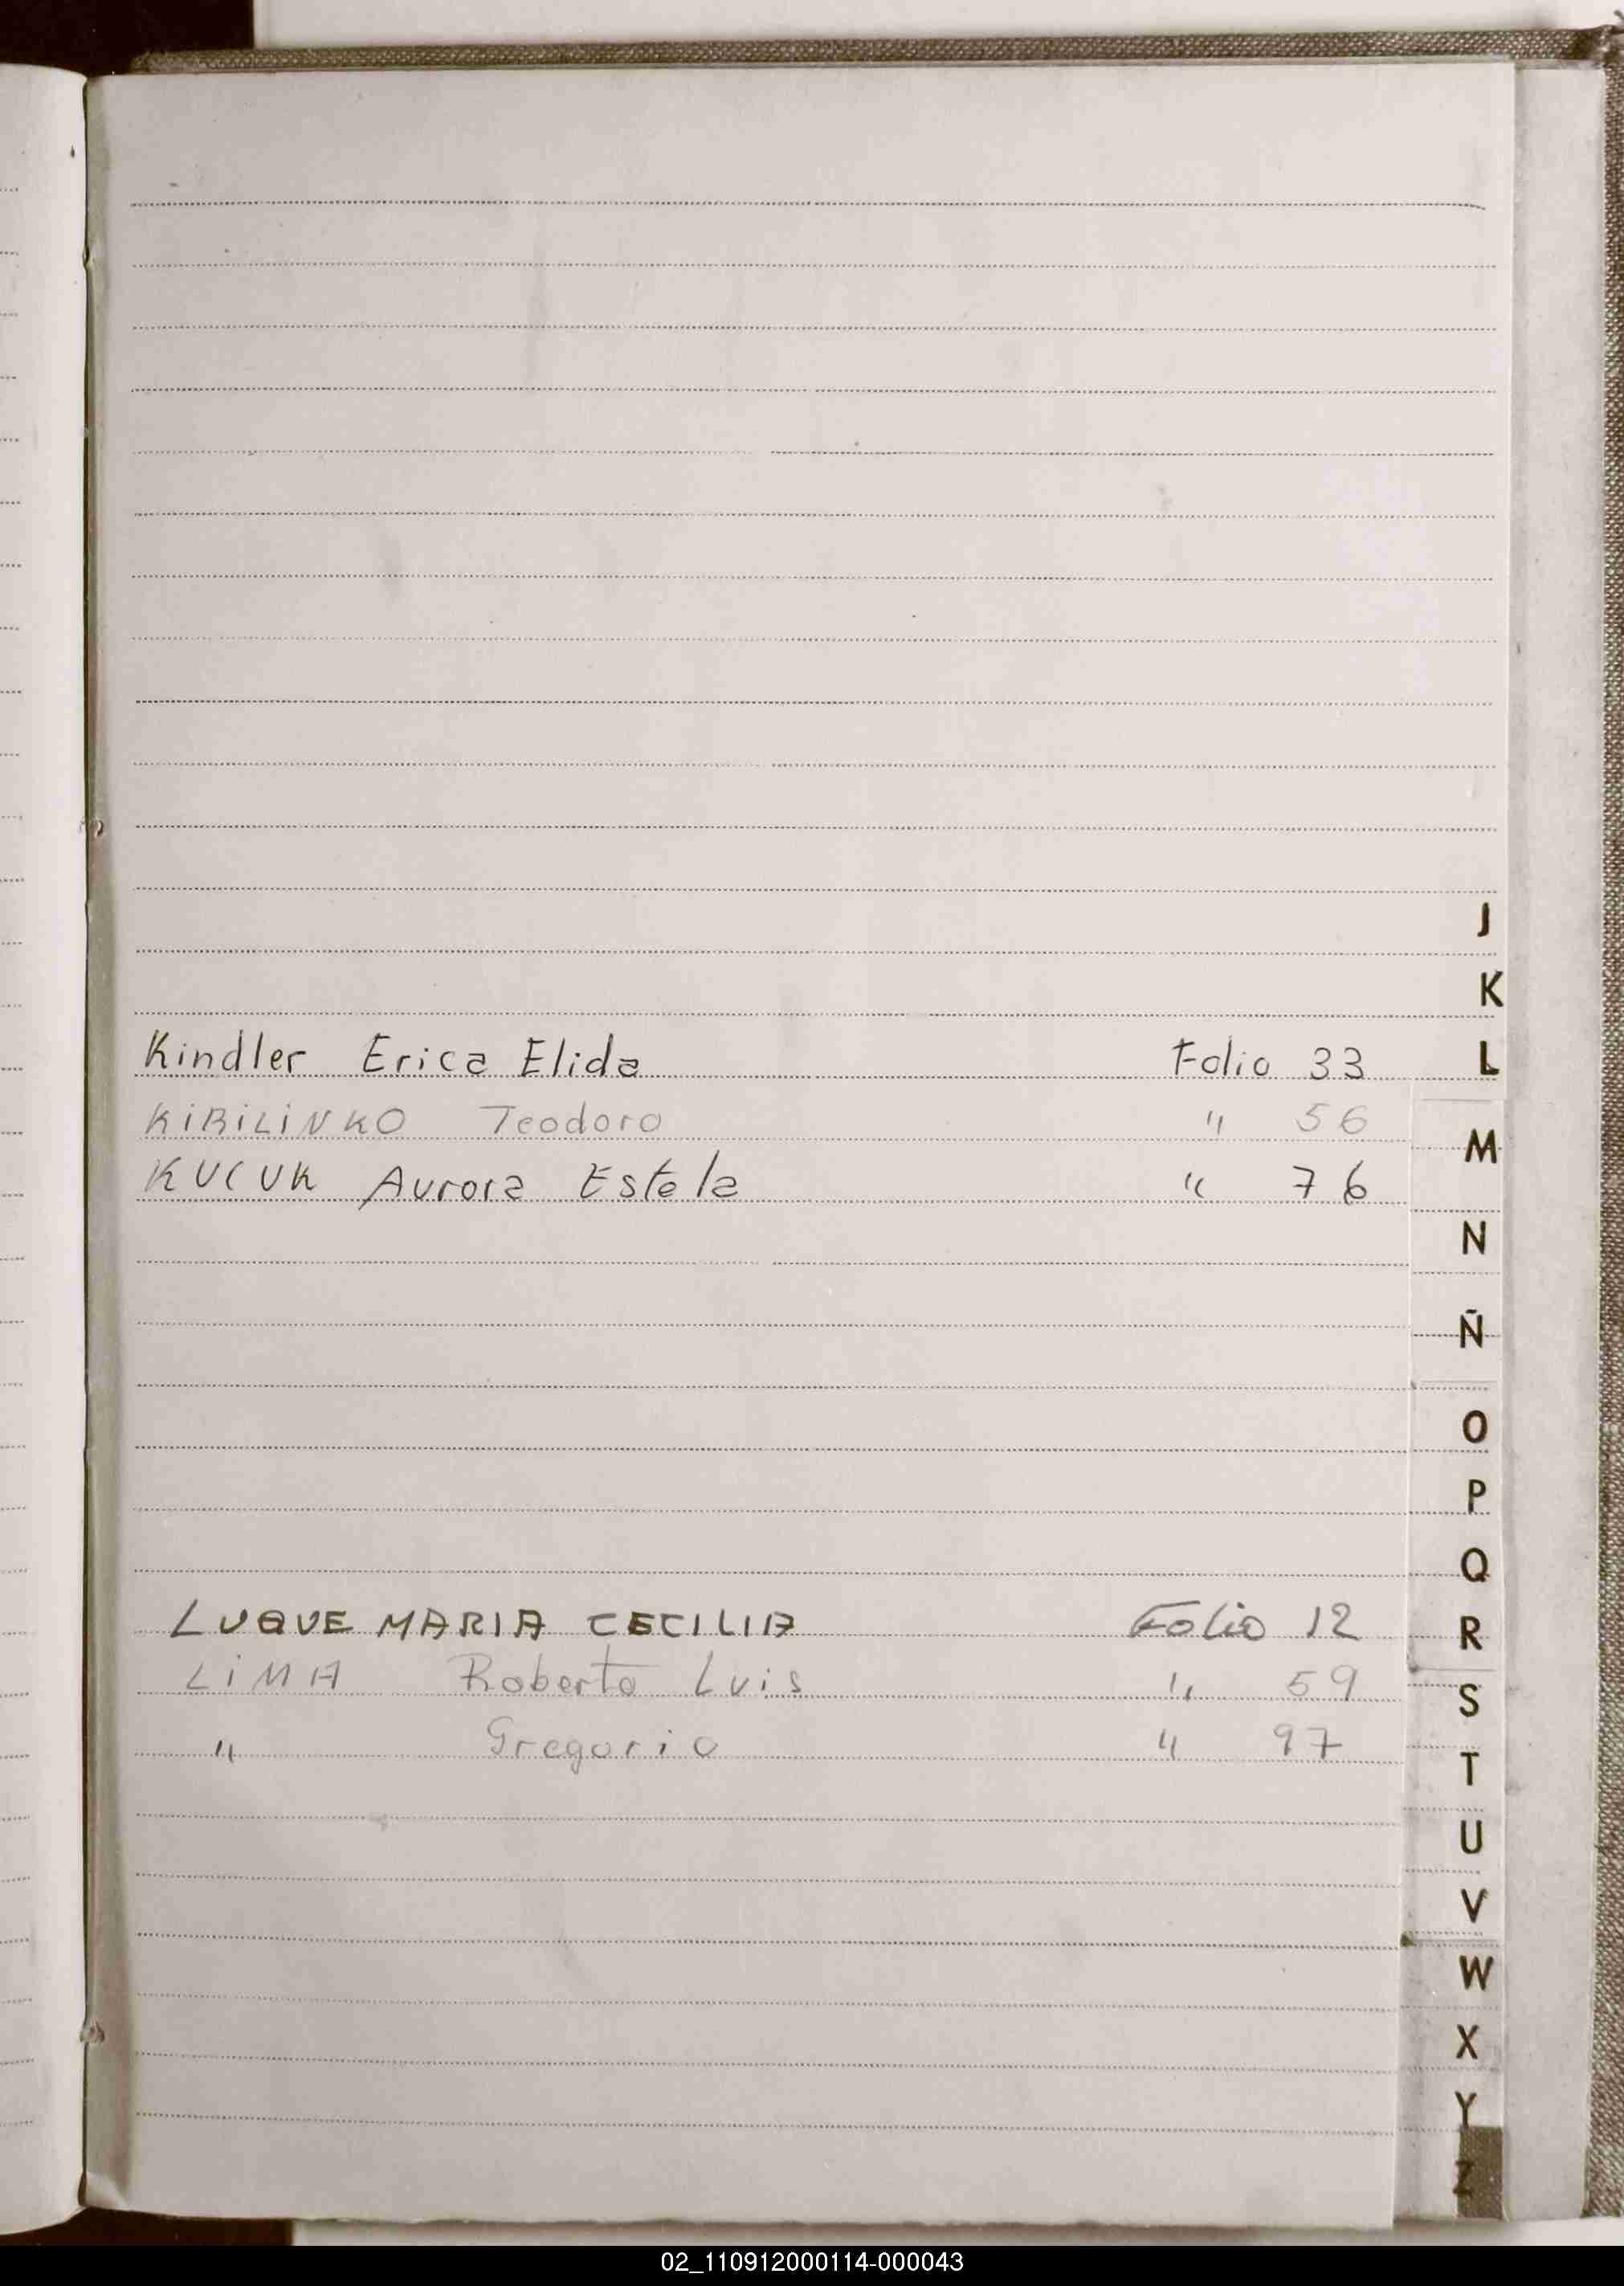 J
K
Kindler Erica Elida Folio 33 L
KiRiLiNKO Teodoro " 56
M
KUCUK Aurora Estela " 76
N
Ñ
O
P
Q
LUQUE MARIA CECILIA Folio 12 R
LiMA Roberto Luis " 59 S
" Gregorio " 97
T
U
V
W
X
Y
Z
02_110912000114-000043